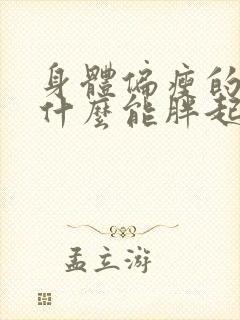 身體偏瘦的
什麼能胖起
孟立游